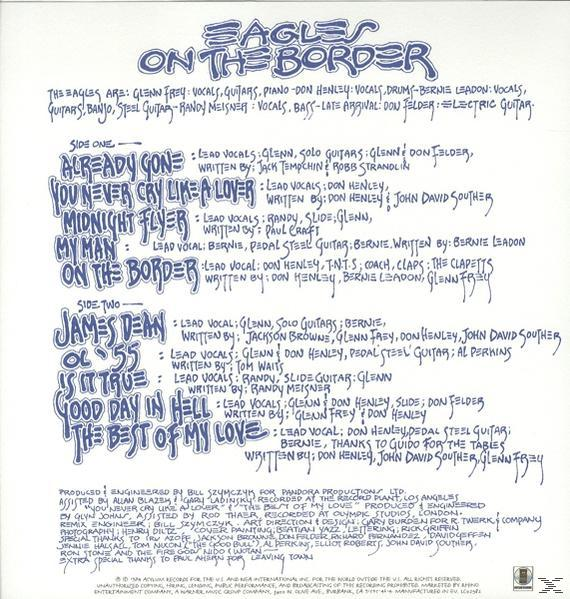 EAGLES
ON THE BORDER
THE EAGLES ARE: GLENN FREY: VOCALS, GUITARS, PIANO - DON HENLEY: VOCALS, DRUMS - BERNIE LEADON: VOCALS,
GUITARS, BANJO, STEEL GUITAR - RANDY MEISNER: VOCALS, BASS - LATE ARRIVAL: DON FELDER: ELECTRIC GUITAR.
SIDE ONE —
ALREADY GONE : LEAD VOCALS: GLENN, SOLO GUITARS: GLENN & DON FELDER,
WRITTEN BY: JACK TEMPCHIN & ROBB STRANDLIN
YOU NEVER CRY LIKE A LOVER : LEAD VOCALS: DON HENLEY,
WRITTEN BY: DON HENLEY & JOHN DAVID SOUTHER
MIDNIGHT FLYER : LEAD VOCALS: RANDY, SLIDE: GLENN,
WRITTEN BY: PAUL CRAFT
MY MAN : LEAD VOCAL: BERNIE, PEDAL STEEL GUITAR: BERNIE. WRITTEN BY: BERNIE LEADON
ON THE BORDER : LEAD VOCAL: DON HENLEY, T.N.T.S: COACH, CLAPS: THE CLAPETTS
WRITTEN BY: DON HENLEY, BERNIE LEADON, GLENN FREY
SIDE TWO —
JAMES DEAN : LEAD VOCAL: GLENN, SOLO GUITARS: BERNIE,
WRITTEN BY: JACKSON BROWNE, GLENN FREY, DON HENLEY, JOHN DAVID SOUTHER
OL' '55 : LEAD VOCALS: GLENN & DON HENLEY, PEDAL STEEL GUITAR: AL PERKINS
WRITTEN BY: TOM WAITS
IS IT TRUE : LEAD VOCALS: RANDY, SLIDE GUITAR: GLENN
WRITTEN BY: RANDY MEISNER
GOOD DAY IN HELL : LEAD VOCALS: GLENN & DON HENLEY, SLIDE: DON FELDER
WRITTEN BY: GLENN FREY & DON HENLEY
THE BEST OF MY LOVE : LEAD VOCAL: DON HENLEY, PEDAL STEEL GUITAR:
BERNIE, THANKS TO GUIDO FOR THE TABLES
WRITTEN BY: DON HENLEY, JOHN DAVID SOUTHER, GLENN FREY
PRODUCED & ENGINEERED BY BILL SZYMCZYK FOR PANDORA PRODUCTIONS LTD.
ASSISTED BY ALLAN BLAZEK & GARY LADINSKY RECORDED AT THE RECORD PLANT, LOS ANGELES
"YOU NEVER CRY LIKE A LOVER" & "THE BEST OF MY LOVE" PRODUCED & ENGINEERED
BY GLYN JOHNS, ASSISTED BY ROD THAER, RECORDED AT OLYMPIC STUDIOS, LONDON.
REMIX ENGINEER: BILL SZYMCZYK. ART DIRECTION & DESIGN: GARY BURDEN FOR R. TWERK & COMPANY
PHOTOGRAPHY: HENRY DILTZ. COVER PAINTING: BEATIAN YAZZ, LETTERING: RICK GRIFFIN
SPECIAL THANKS TO: IRV AZOFF, JACKSON BROWNE, DON FELDER, RICHARD FERNANDEZ, DAVID GEFFEN
JENNIE HALSALL, TOM NIXON, ("THE GOOD BULL), AL PERKINS, ELLIOT ROBERTS, JOHN DAVID SOUTHER.
RON STONE AND THE FIRE GODS NIDO & WOTAN —
EXTRA SPECIAL THANKS TO PAUL AHERN FOR LEAVING TOWN
© ℗ 1974 ASYLUM RECORDS FOR THE U.S. AND WEA INTERNATIONAL INC. FOR THE WORLD OUTSIDE THE U.S. ALL RIGHTS RESERVED.
UNAUTHORIZED COPYING, HIRING, LENDING, PUBLIC PERFORMANCE, AND BROADCASTING OF THIS RECORDING PROHIBITED. MARKETED BY RHINO
ENTERTAINMENT COMPANY, A WARNER MUSIC GROUP COMPANY, OLIVE AVE., BURBANK, CA MANUFACTURED IN EU.